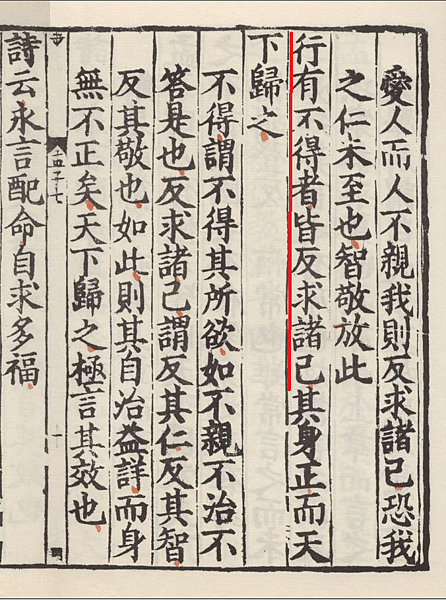 愛人而人不親我則反求諸己恐我
之仁未至也智敬放此
行有不得者皆反求諸己其身正而天
下歸之
不得謂不得其所欲如不親不治不
答是也反求諸己謂反其仁反其智
反其敬也如此則其自治益詳而身
無不正矣天下歸之極言其效也
孟子七
詩云永言配命自求多福